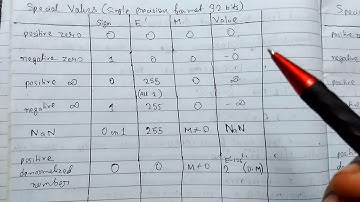 Special Values (Single precision format 32 bits)
Sign E' M Value
positive zero 0 0 0 0
negative zero 1 0 0 -0
positive ∞ 0 255 0 ∞
(All 1)
negative ∞ 1 255 0 -∞
NaN 0 or 1 255 M≠0 NaN
positive
denormalized 0 0 M≠0 2 (0.M)
numbers